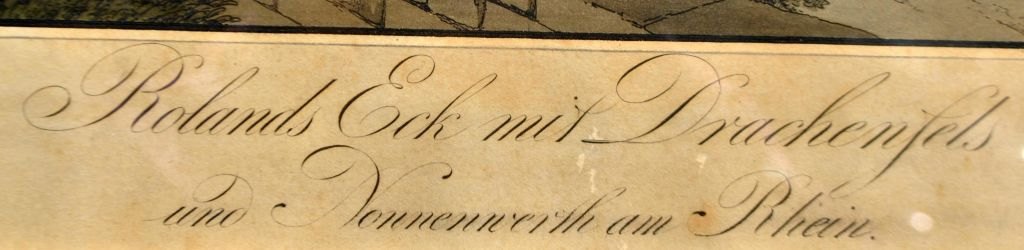 Rolands Eck mit Drachenfels
und Nonnenwerth am Rhein.